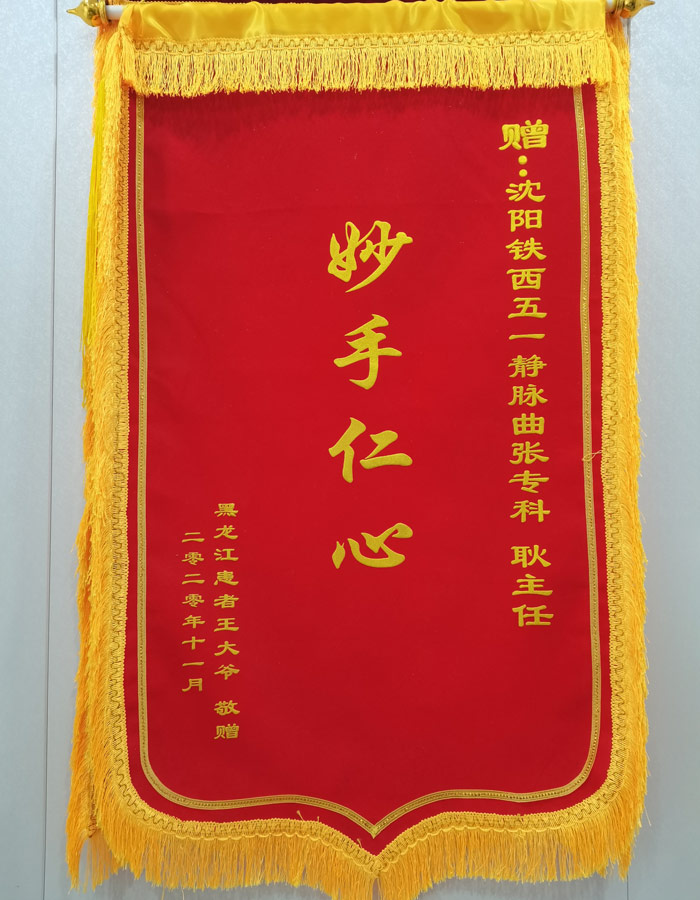 赠:沈阳铁西五一静脉曲张专科 耿主任
妙手仁心
黑龙江患者王大爷 敬赠
二零二零年十一月